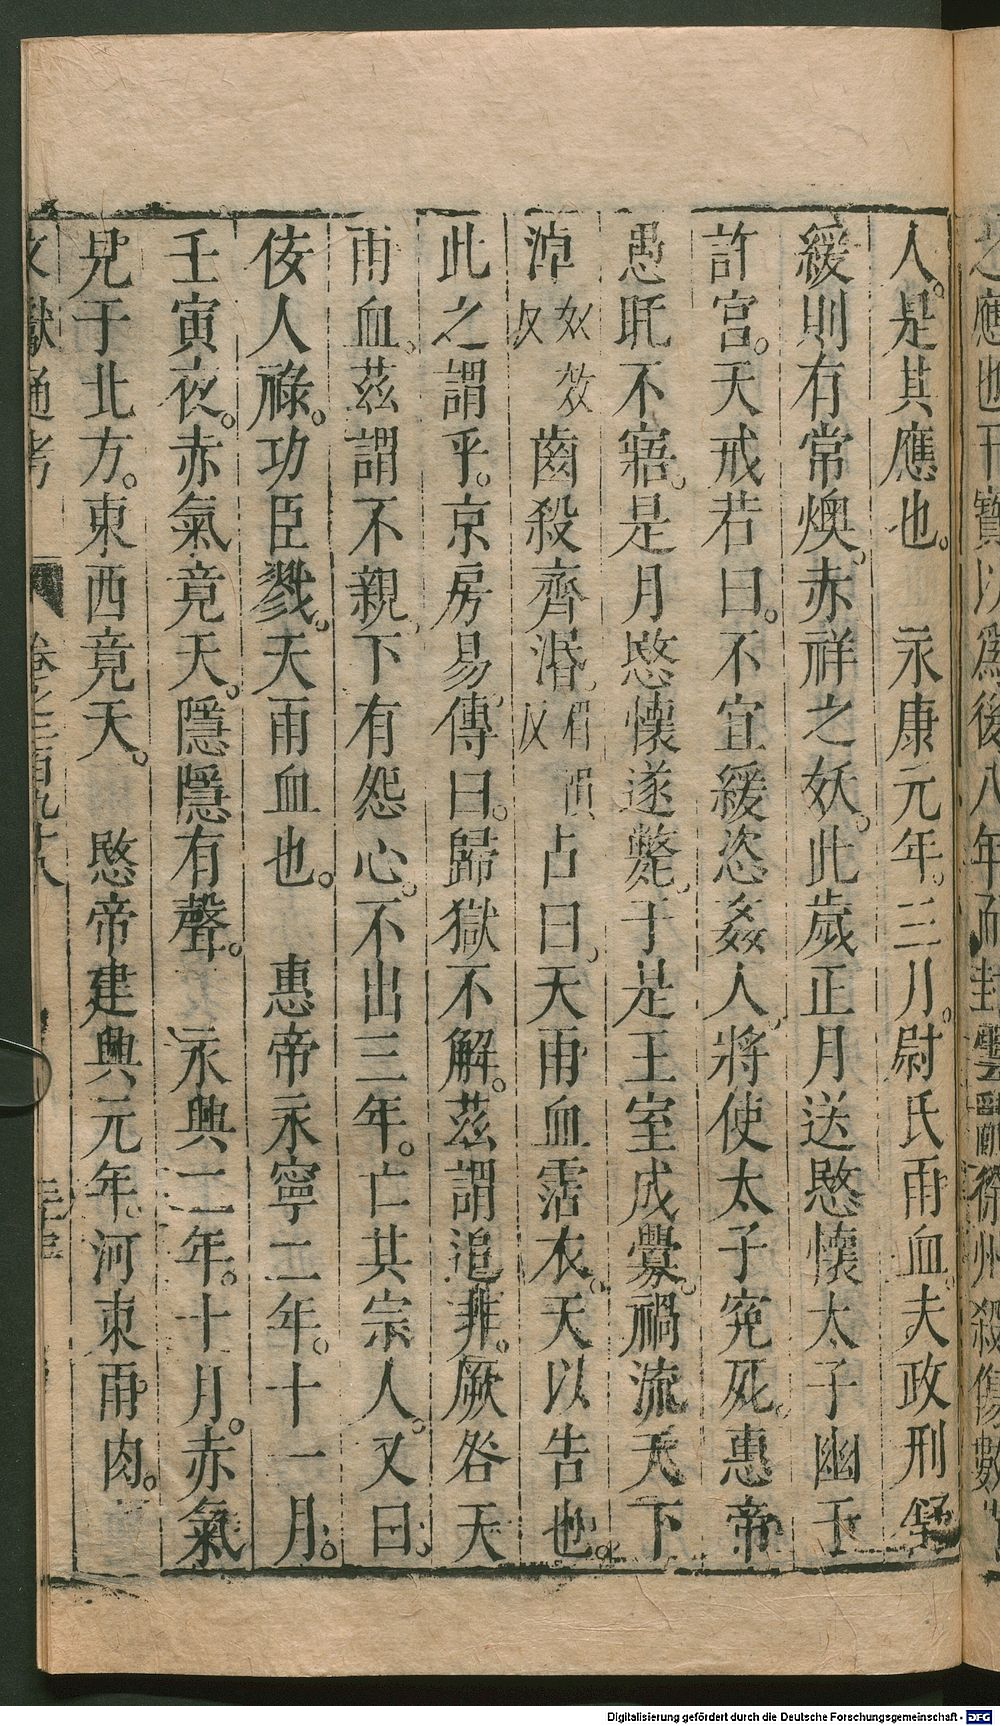 之應也干寶以爲後八年而封雲亂徐州殺傷數
人。是其應也。　永康元年。三月。尉氏雨血。夫政刑舒
緩則有常燠。赤祥之妖。此歲正月送愍懷太子幽于
許宮。天戒若曰。不宜緩恣姦人。將使太子寃死。惠帝
愚眊不寤。是月愍懷遂斃。于是王室成釁。禍流天下
淖奴效反齒殺齊湣湣反占曰。天雨血霑衣。天以告也。
此之謂乎。京房易傳曰。歸獄不解。茲謂追非。厥咎天
雨血。茲謂不親。下有怨心。不出三年。亡其宗人。又曰。
佞人祿。功臣戮。天雨血也。　惠帝永寧二年。十一月。
壬寅夜。赤氣竟天。隱隱有聲。　永興二年。十月。赤氣
見于北方。東西竟天。　愍帝建興元年。河東雨肉。
文獻通考　卷之三百九十八
Digitalisierung gefördert durch die Deutsche Forschungsgemeinschaft - DFG